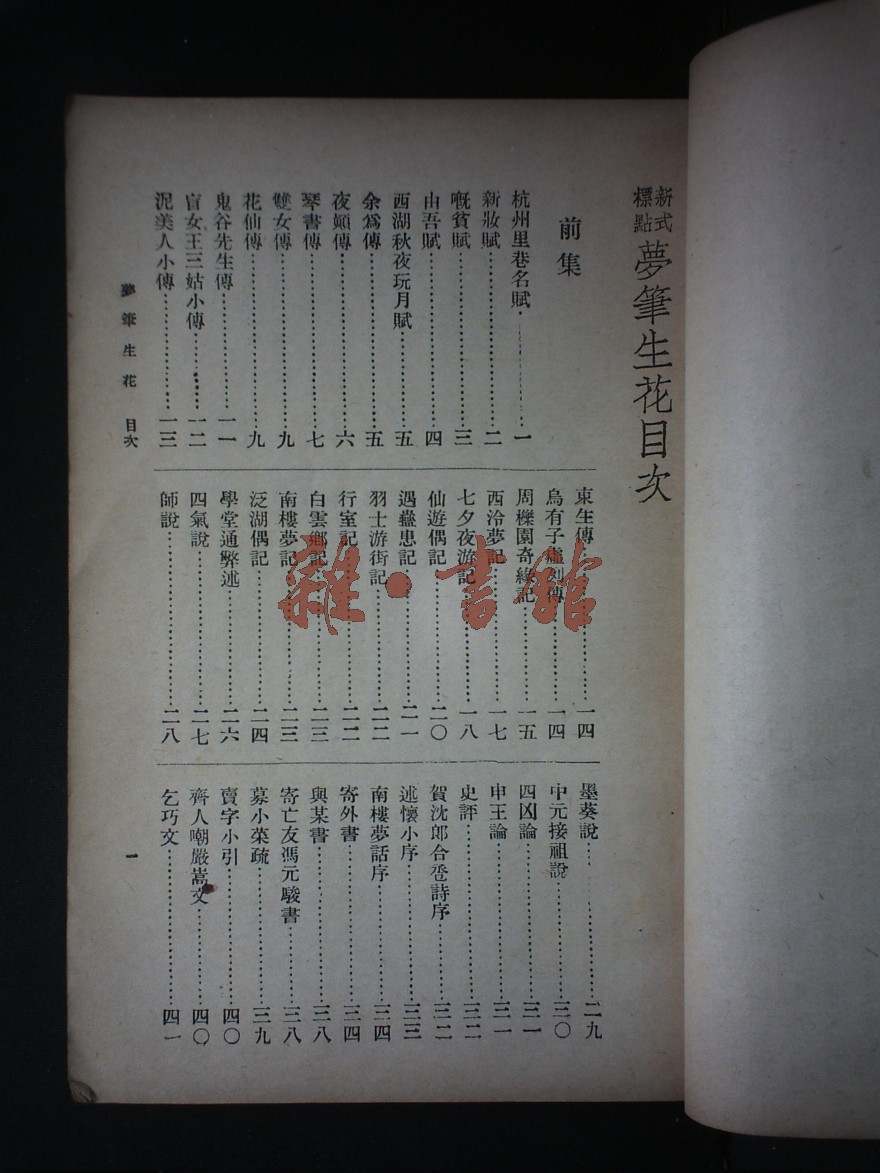 新式標點 夢筆生花目次
前集
杭州里巷名賦 一
新妝賦 二
嘅貧賦 三
由吾賦 四
西湖秋夜玩月賦 五
余爲傳 五
夜顚傳 六
琴書傳 七
雙女傳 九
花仙傳 九
鬼谷先生傳 一一
盲女王三姑小傳 一二
泥美人小傳 一三
東生傳 一四
烏有子 傳 一四
周櫟園奇緣記 一五
西泠夢記 一七
七夕夜游記 一八
仙遊偶記 二〇
遇蠱患記 二一
羽士游街記 二二
行室記 二二
白雲鄉記 二三
南樓夢記 二三
泛湖偶記 二四
學堂通弊述 二六
四氣說 二七
師說 二八
墨葵說 二九
中元接祖說 三〇
四凶論 三一
申王論 三一
史評 三二
賀沈郎合巹詩序 三二
述懷小序 三三
南樓夢話序 三四
寄外書 三四
與某書 三八
寄亡友馮元駿書 三八
募小菜疏 三九
賣字小引 四〇
齊人嘲嚴嵩文 四〇
乞巧文 四一
夢筆生花 目次
一
雜·書館